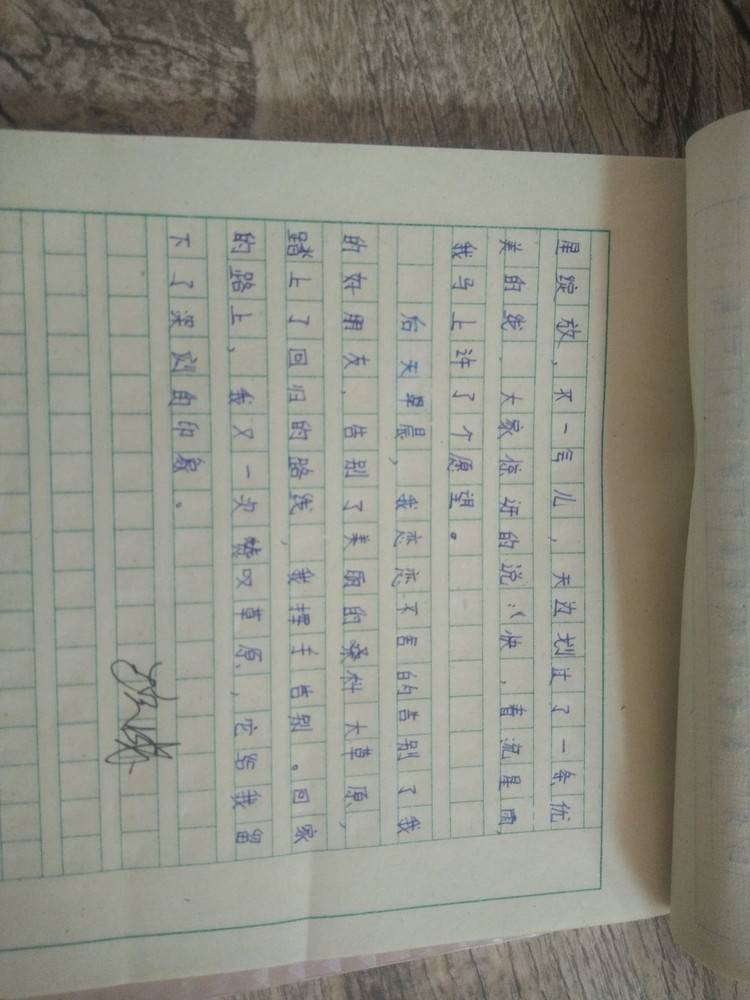 星绽放，不一号儿，天边划过了一条优
美的线，大家惊讶的说：“快，看流星雨，
我马上许了个愿望。
后天早晨，我恋恋不舍的告别了我
的好朋友，告别了美丽的桑科大草原，
踏上了回归的路线，我挥手告别。回家
的路上，我又一次赞叹草原，它给我留
下了深刻的印象。